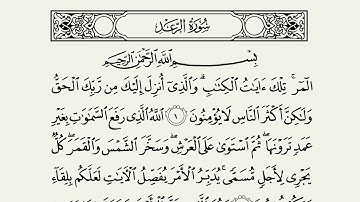 سُورَةُ الرَّعْدِ
بِسْمِ اللَّهِ الرَّحْمَٰنِ الرَّحِيمِ
الٓمٓرۚ تِلْكَ ءَايَٰتُ الْكِتَٰبِۗ وَالَّذِىٓ أُنزِلَ إِلَيْكَ مِن رَّبِّكَ الْحَقُّ
وَلَٰكِنَّ أَكْثَرَ النَّاسِ لَا يُؤْمِنُونَ ١ اللَّهُ الَّذِى رَفَعَ السَّمَٰوَٰتِ بِغَيْرِ
عَمَدٍ تَرَوْنَهَاۖ ثُمَّ اسْتَوَىٰ عَلَى الْعَرْشِۖ وَسَخَّرَ الشَّمْسَ وَالْقَمَرَۖ كُلٌّ
يَجْرِى لِأَجَلٍ مُّسَمًّىۚ يُدَبِّرُ الْأَمْرَ يُفَصِّلُ الْءَايَٰتِ لَعَلَّكُم بِلِقَآءِ